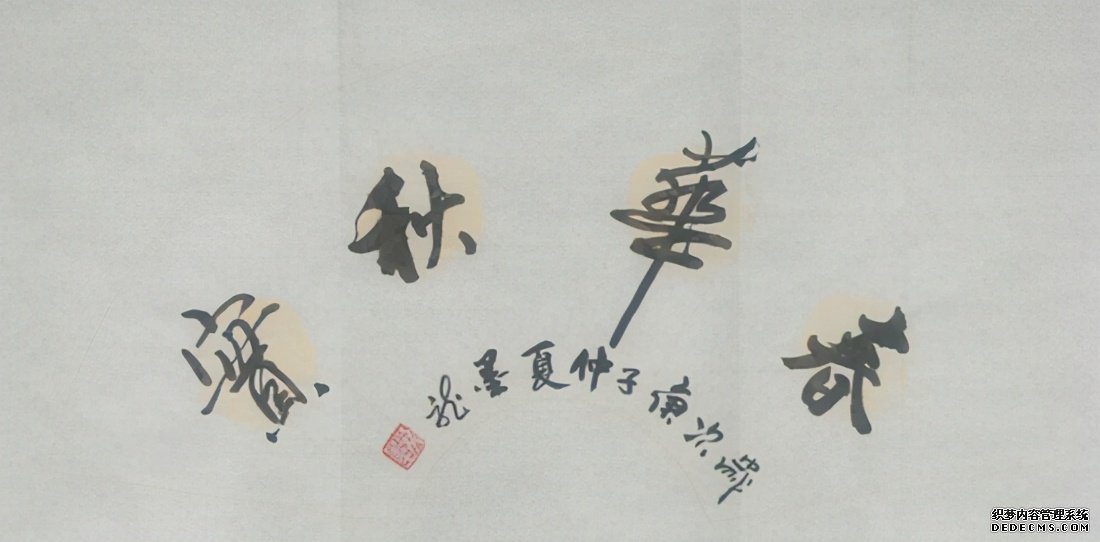 春華秋實
歲次庚子仲夏墨龙
织梦内容管理系统
DEDECMS.COM